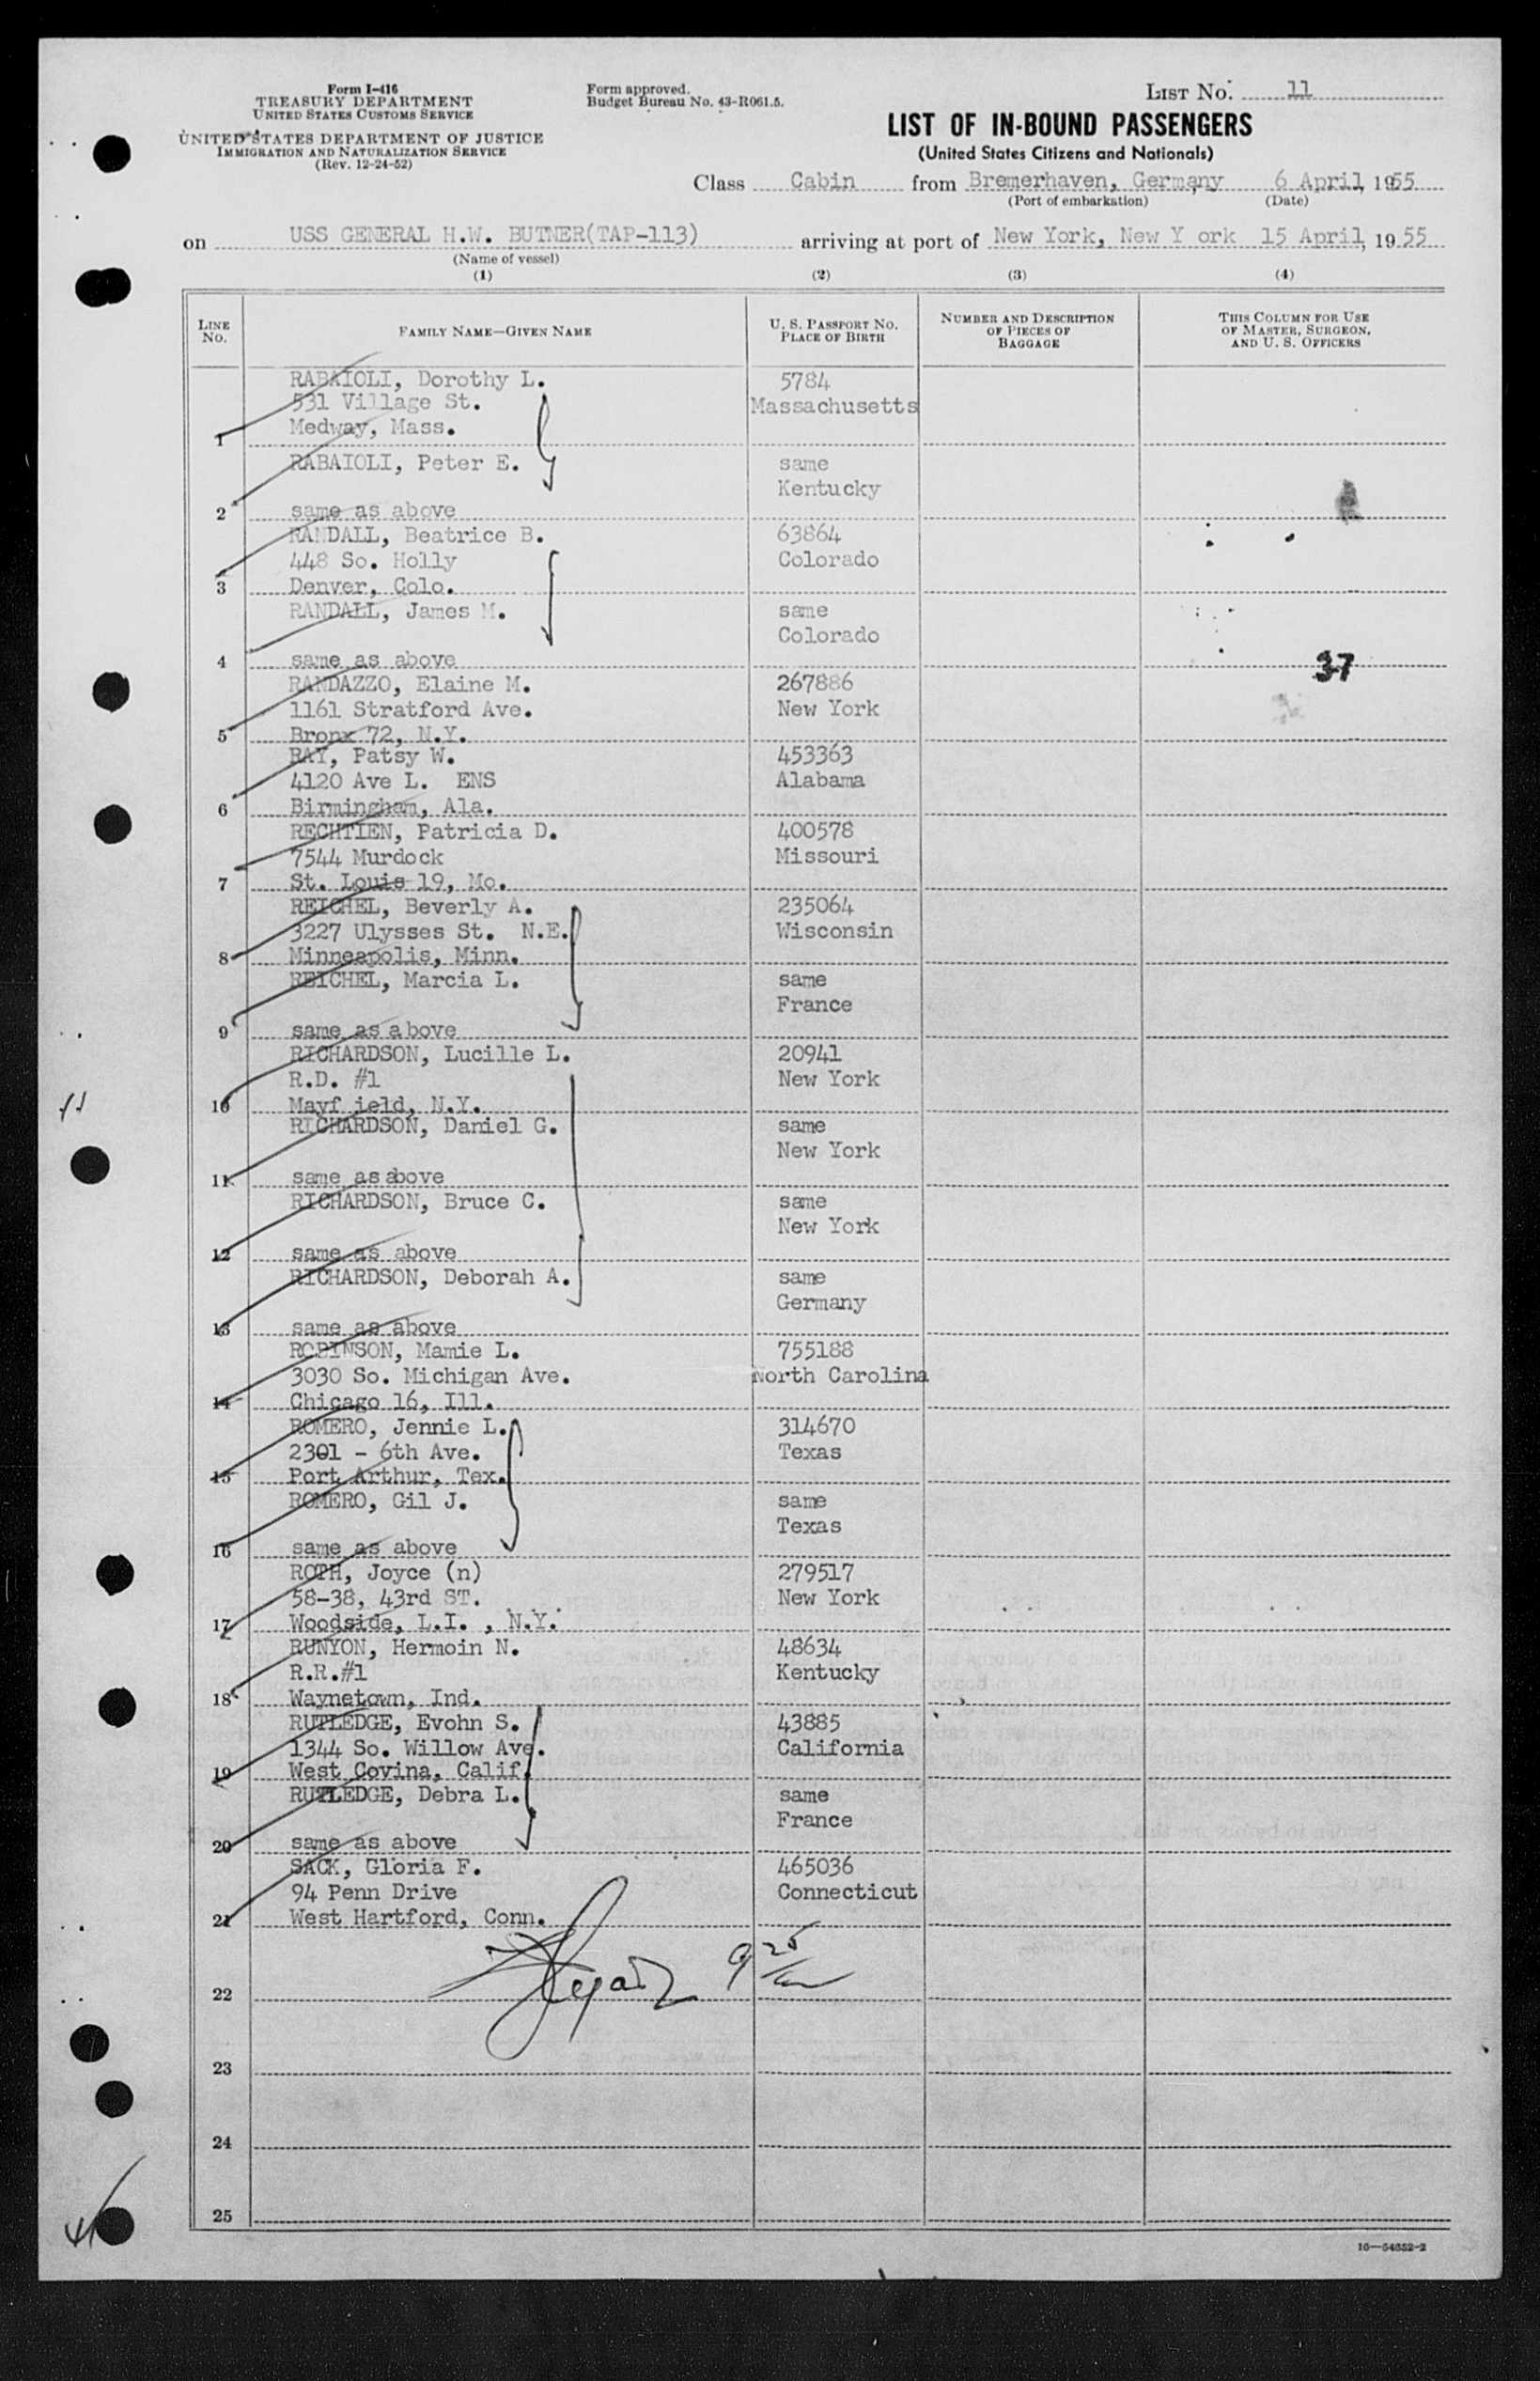 Form I-416
TREASURY DEPARTMENT
UNITED STATES CUSTOMS SERVICE
UNITED STATES DEPARTMENT OF JUSTICE
IMMIGRATION AND NATURALIZATION SERVICE
(Rev. 12-24-52)
Form approved.
Budget Bureau No. 43-R061.5.
LIST No. 11
LIST OF IN-BOUND PASSENGERS
(United States Citizens and Nationals)
Class Cabin from Bremerhaven, Germany 6 April, 1955
(Port of embarkation) (Date)
on USS GENERAL H.W. BUTNER(TAP-113) arriving at port of New York, New Y ork 15 April, 1955
(Name of vessel)
(1) (2) (3) (4)
LINE NO. FAMILY NAME—GIVEN NAME U. S. PASSPORT NO. PLACE OF BIRTH NUMBER AND DESCRIPTION OF PIECES OF BAGGAGE THIS COLUMN FOR USE OF MASTER, SURGEON, AND U. S. OFFICERS
RABAIOLI, Dorothy L. 5784
531 Village St. Massachusetts
1 Medway, Mass.
RABAIOLI, Peter E. same
Kentucky
2 same as above
RANDALL, Beatrice B. 63864
448 So. Holly Colorado
3 Denver, Colo.
RANDALL, James M. same
Colorado
4 same as above 37
RANDAZZO, Elaine M. 267886
1161 Stratford Ave. New York
5 Bronx 72, N.Y.
RAY, Patsy W. 453363
4120 Ave L. ENS Alabama
6 Birmingham, Ala.
RECHTIEN, Patricia D. 400578
7544 Murdock Missouri
7 St. Louis 19, Mo.
REICHEL, Beverly A. 235064
3227 Ulysses St. N.E. Wisconsin
8 Minneapolis, Minn.
REICHEL, Marcia L. same
France
9 same as above
RICHARDSON, Lucille L. 20941
R.D. #1 New York
10 Mayf ield, N.Y.
RICHARDSON, Daniel G. same
New York
11 same as above
RICHARDSON, Bruce C. same
New York
12 same as above
RICHARDSON, Deborah A. same
Germany
13 same as above
ROBINSON, Mamie L. 755188
3030 So. Michigan Ave. North Carolina
14 Chicago 16, Ill.
ROMERO, Jennie L. 314670
2301 - 6th Ave. Texas
15 Port Arthur, Tex.
ROMERO, Gil J. same
Texas
16 same as above
ROTH, Joyce (n) 279517
58-38, 43rd ST. New York
17 Woodside, L.I. , N.Y.
RUNYON, Hermoin N. 48634
R.R.#1 Kentucky
18 Waynetown, Ind.
RUTLEDGE, Evohn S. 43885
1344 So. Willow Ave. California
19 West Covina, Calif.
RUTLEDGE, Debra L. same
France
20 same as above
SACK, Gloria F. 465036
94 Penn Drive Connecticut
21 West Hartford, Conn.
22
23
24
25
16—64652-2